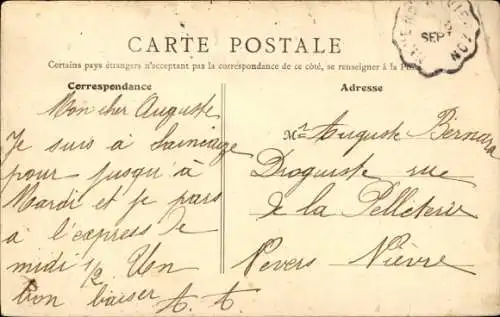 CARTE POSTALE
Certains pays étrangers n'acceptant pas la correspondance de ce côté, se renseigner à la
Correspondance
Adresse
SEPT
Mon cher Auguste
Je suis à
pour jusqu'à
Mardi et je pars
a l'express de
midi 1/2 Un
bon baiser A. A
Mr Auguste Bernard
Droguiste rue
de la Pelleterie
Nevers Nièvre